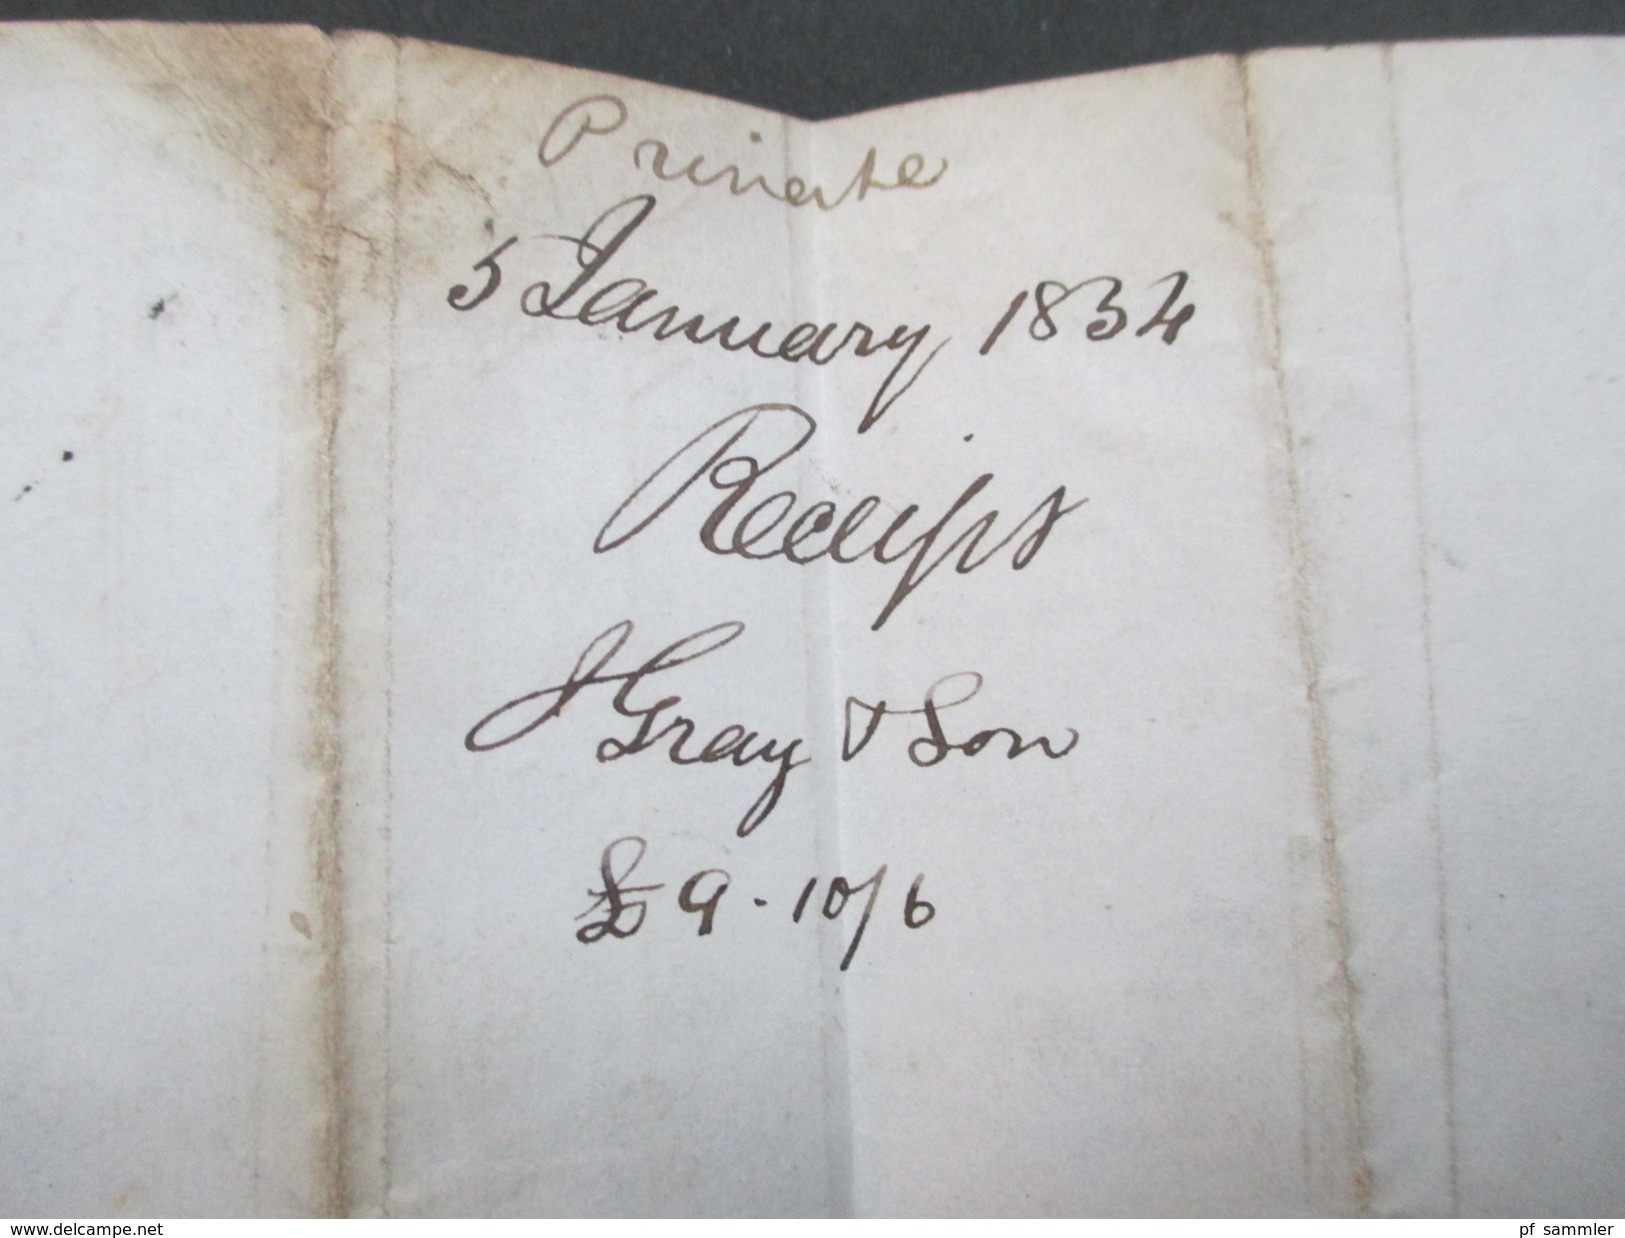 Private
5 January 1834
Receipt
J Gray & Son
£9 . 10/6
www.delcampe.net
pf_sammler